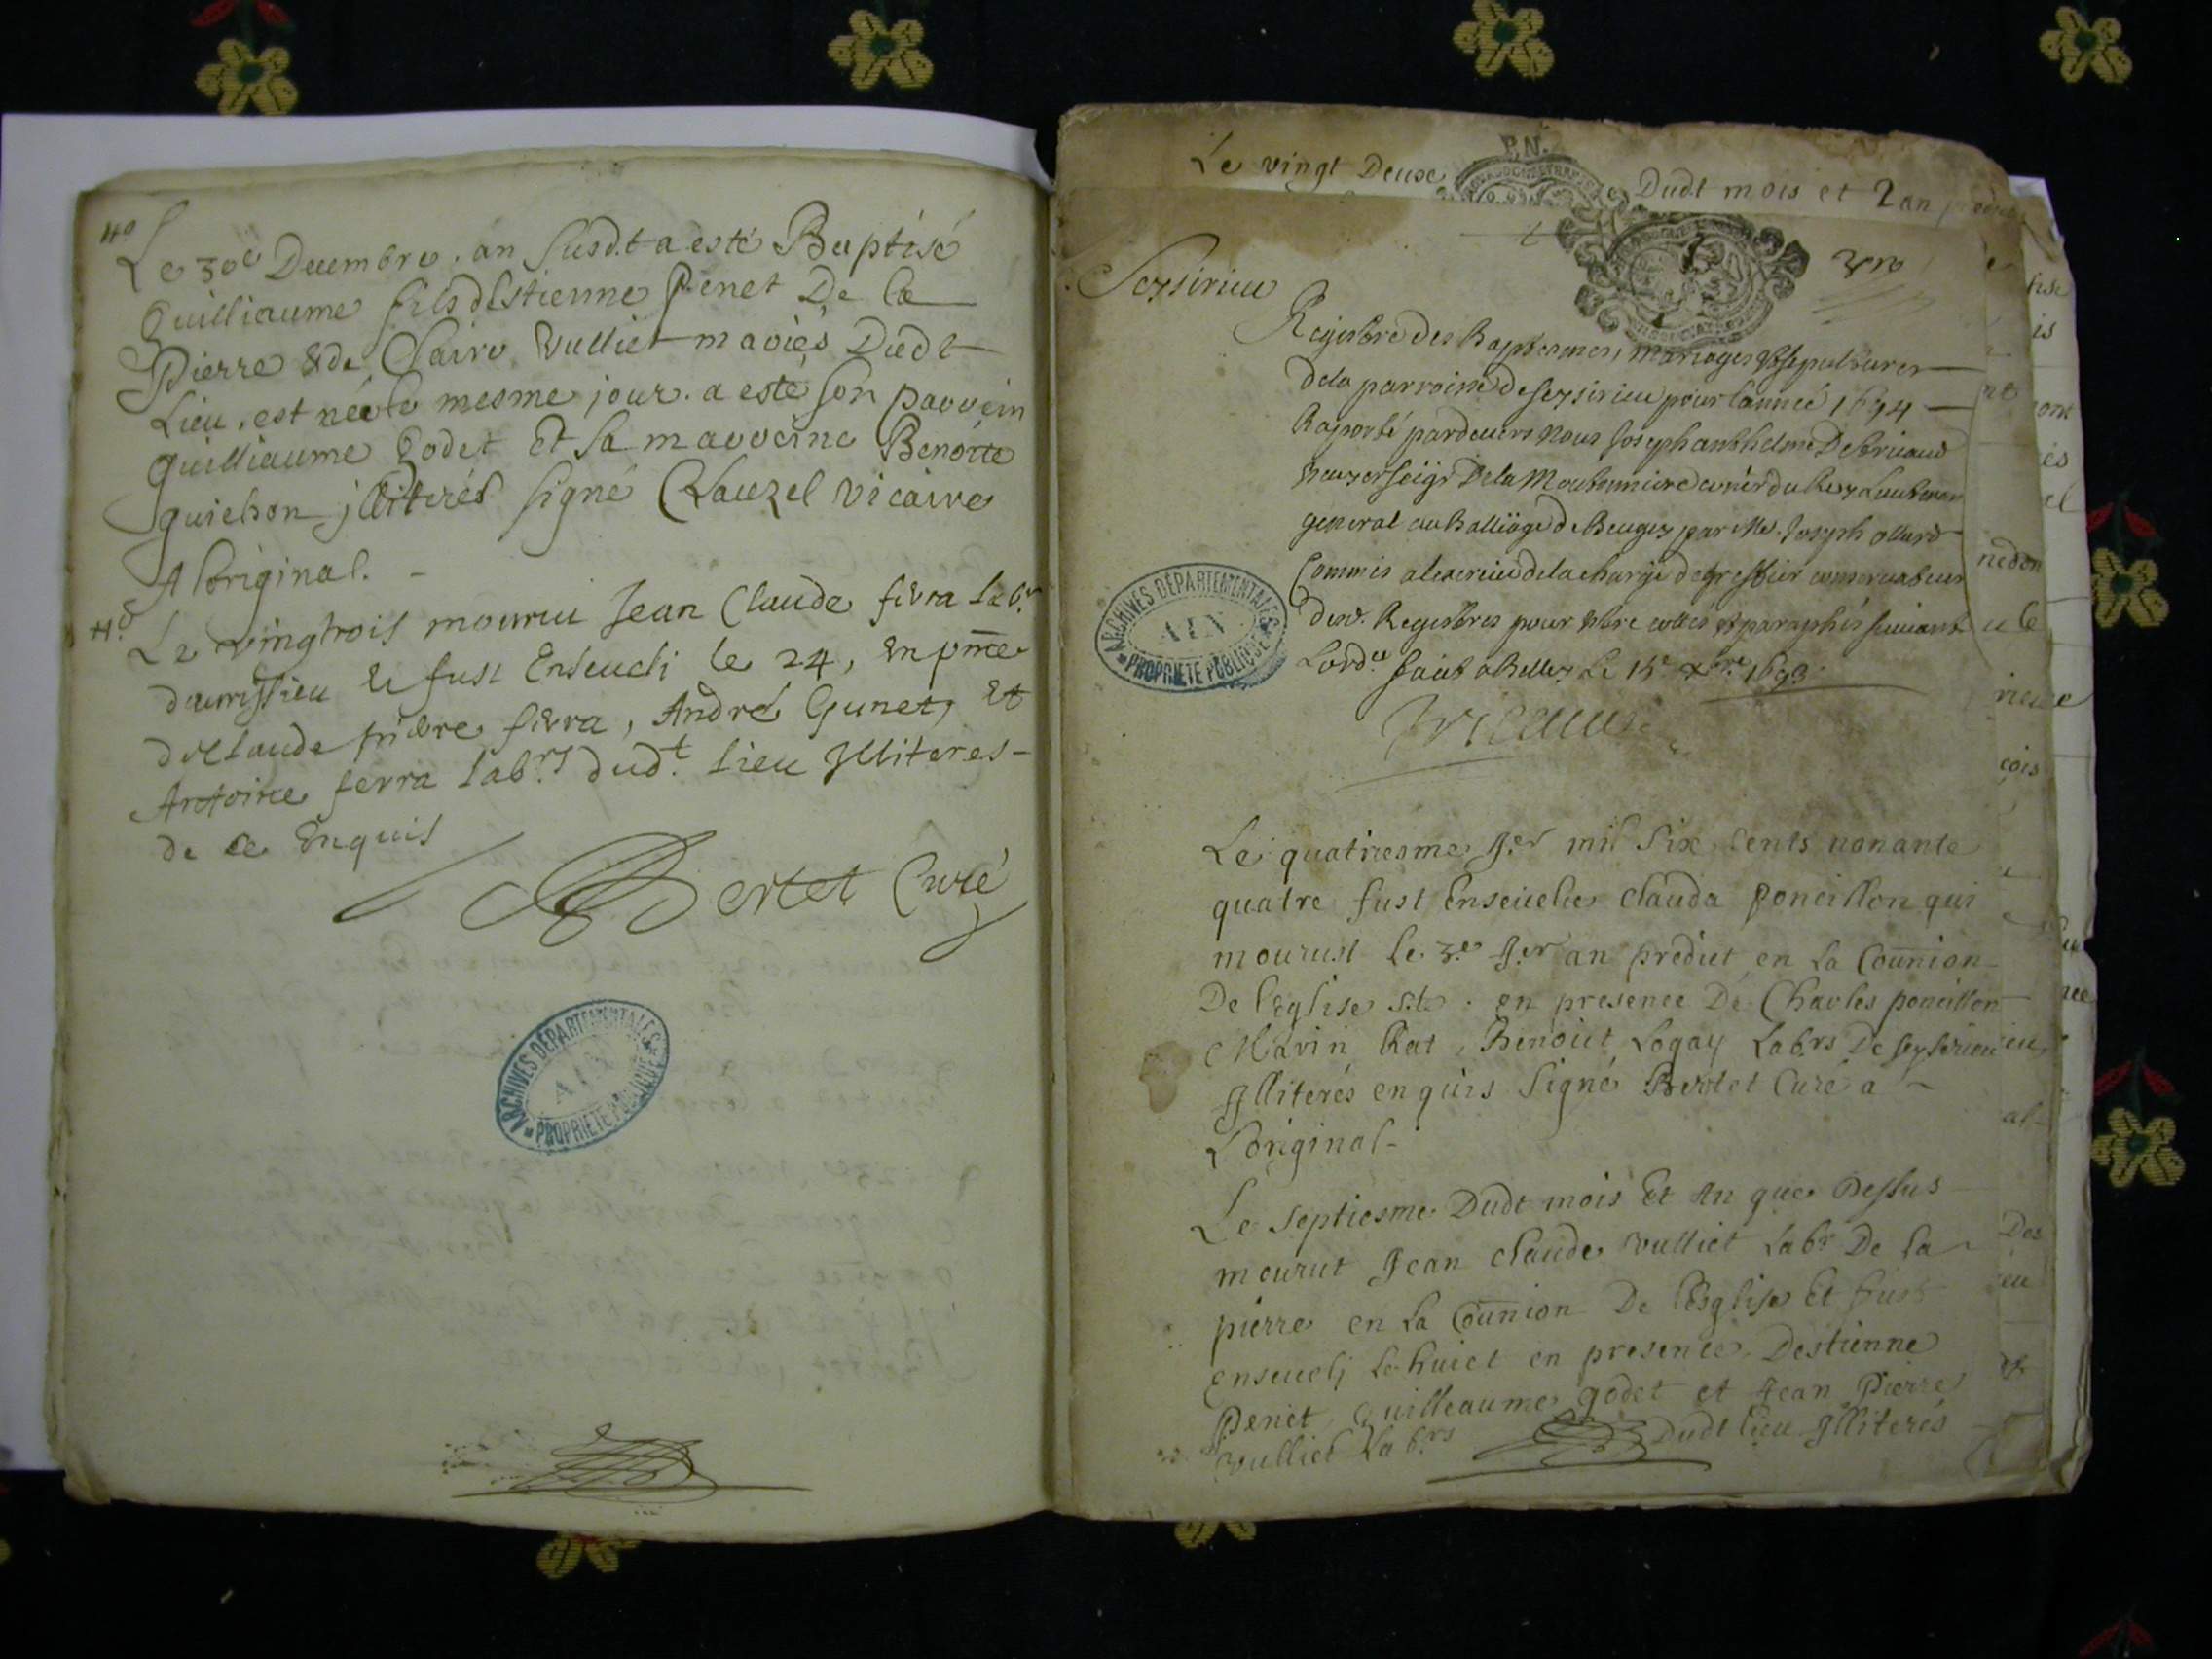 40
Le 30e Decembre . an susd.t a esté Baptisé
Guilliaume fils d'Estienne Penet De la
Pierre & de Claire Vulliet mariés Dud.t
Lieu . est né le mesme jour . a esté son parrein
Guilliaume Godet Et sa marreine Benoite
Guichon jlliterés signé Clauzel vicaire
A l'original . -
41
Le vingtrois mourru Jean Claude ferra lab.r
d'avrissieu & fust Enseueli le 24, En pnce
de Claude pierre ferra, André Gunet, Et
Antoine ferra lab.rs dud.t lieu Jlliteres -
de ce Enquis
Bertet Curé
ARCHIVES DÉPARTEMENTALES
AIN
PROPRIETE PUBLIQUE
Le vingt Deuxe Dud.t mois et l an predict
GEN.
Seysirieu
Registre des Baptesmes, Mariages & sepultures
de la parroisse de seysirieu pour l'année 1694
Raporté pardeuers Nous Joseph anthelme De
seigr De la du Roy Lieutenan
general au Balliage de Beugey par Me. Joseph
Commis a l'exercice de la charge de greffier conseruateur
desd. Registres pour estre cottés & paraphés suiuant
Lord.ce faict a Belley Le 15e Xbre 1693
ARCHIVES DÉPARTEMENTALES
AIN
PROPRIETE PUBLIQUE
Le quatriesme J.er mil Six Cents nonante
quatre fust Enseuelie Clauda Poncillon qui
mourust le 3.e J.er an predict en la Coūnion
De l'Eglise S.te . en presence De Charles poncillon
Marin Rat, Benoict Logay Lab.rs De seyserieu
Jlliterés enquis Signé Bertet Curé a
L'original -
Le Septiesme Dud.t mois Et An que Dessus
mourut Jean Claude Vulliet Lab.r De la
pierre en la Coūnion De l'Esglise Et fust
enseuelj le huict en presence D'estienne
Penet, Guilleaume godet et Jean Pierre
Vulliet Lab.rs Dud.t lieu Jlliterés